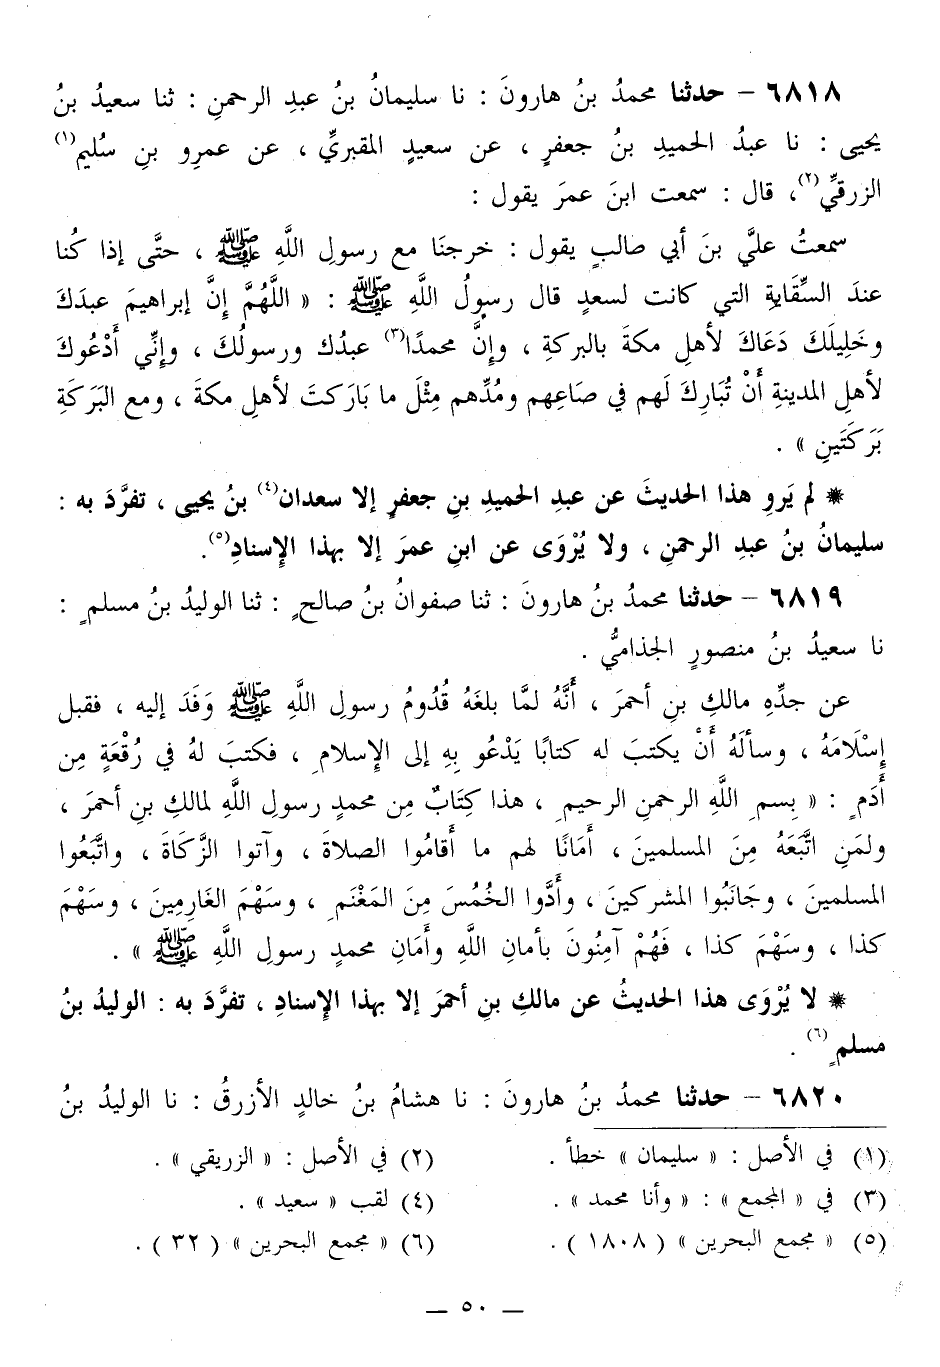 ٦٨١٨ – حدثنا محمدُ بنُ هارونَ : نا سليمانُ بنُ عبدِ الرحمنِ : ثنا سعيدُ بنُ
يحيى : نا عبدُ الحميدِ بنُ جعفرٍ ، عن سعيدٍ المقبريِّ ، عن عمرِو بنِ سُليمٍ(١)
الزرقيِّ(٢)، قال : سمعت ابنَ عمرَ يقول :
سمعتُ عليَّ بنَ أبي صالبٍ يقول : خرجنَا مع رسولِ اللَّهِ ﷺ ، حتَّى إذا كُنا
عندَ السِّقَايةِ التي كانت لسعدٍ قال رسولُ اللَّهِ ﷺ : « اللَّهُمَّ إِنَّ إبراهيمَ عبدَكَ
وخَلِيلَكَ دَعَاكَ لأهلِ مكةَ بالبركةِ ، وإنَّ محمدًا(٣) عبدُك ورسولُكَ ، وإنِّي أَدْعُوكَ
لأهلِ المدينةِ أَنْ تُبَارِكَ لَهم في صَاعِهم ومُدِّهم مِثْلَ ما بَارَكتَ لأهلِ مكةَ ، ومع البَرَكَةِ
بَرَكَتَينِ » .
* لم يَروِ هذا الحديثَ عن عبدِ الحميدِ بنِ جعفرٍ إلا سعدان(٤) بنُ يحيى ، تفرَّدَ به :
سليمانُ بنُ عبدِ الرحمنِ ، ولا يُرْوَى عن ابنِ عمرَ إلا بهذا الإِسنادِ(٥).
٦٨١٩ – حدثنا محمدُ بنُ هارونَ : ثنا صفوانُ بنُ صالحٍ : ثنا الوليدُ بنُ مسلمٍ :
نا سعيدُ بنُ منصورٍ الجذاميُّ .
عن جدِّهِ مالكِ بنِ أحمرَ ، أَنَّهُ لمَّا بلغَهُ قُدُومُ رسولِ اللَّهِ ﷺ وَفَدَ إليه ، فقبل
إِسْلَامَهُ ، وسألَهُ أَنْ يكتبَ له كتابًا يَدْعُو بِهِ إلى الإِسلامِ ، فكتبَ لهُ في رُقْعَةٍ مِن
أَدَمٍ : « بِسمِ اللَّهِ الرحمنِ الرحيمِ ، هذا كِتَابٌ مِن محمدٍ رسولِ اللَّهِ لمالكِ بنِ أحمرَ ،
ولمَنِ اتَّبَعَهُ مِنَ المسلمينَ ، أمَانًا لهم ما أَقَامُوا الصلاةَ ، وآتوا الزَّكَاةَ ، واتَّبَعُوا
المسلمينَ ، وجَانَبُوا المشركينَ ، وأَدَّوا الخُمُسَ مِنَ المَغْنَمِ ، وسَهْمَ الغَارِمِينَ ، وسَهْمَ
كذا ، وسَهْمَ كذا ، فَهُمْ آمِنُونَ بأمانِ اللَّهِ وأَمَانِ محمدٍ رسولِ اللَّهِ ﷺ » .
* لا يُرْوَى هذا الحديثُ عن مالكِ بنِ أحمرَ إلا بهذا الإِسنادِ ، تفرَّدَ به : الوليدُ بنُ
مسلمٍ(٦) .
٦٨٢٠ – حدثنا محمدُ بنُ هارونَ : نا هشامُ بنُ خالدٍ الأزرقُ : نا الوليدُ بنُ
(١) في الأصل : « سليمان » خطأ .
(٢) في الأصل : « الزريقي » .
(٣) في « المجمع » : « وأنا محمد » .
(٤) لقب « سعيد » .
(٥) « مجمع البحرين » ( ١٨٠٨ ) .
(٦) « مجمع البحرين » ( ٣٢ ) .
— ٥٠ —